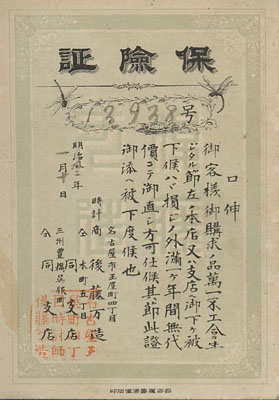 保險証
13938号
口伸
御客様御購求ノ品萬一不工合ヲ生
ジタル節ハ本店又ハ支店ヘ御下ヶ被
下候ハヾ損ジノ外滿一ヶ年間無代
價ニテ御直シ方可仕候其節此證
御添ヘ被下度候也
明治
年
一月十日
名古屋市玉屋町四丁目
時計商 後藤万造
仝本町五丁目
仝同支店
三州豊橋呉服町
仝同支店